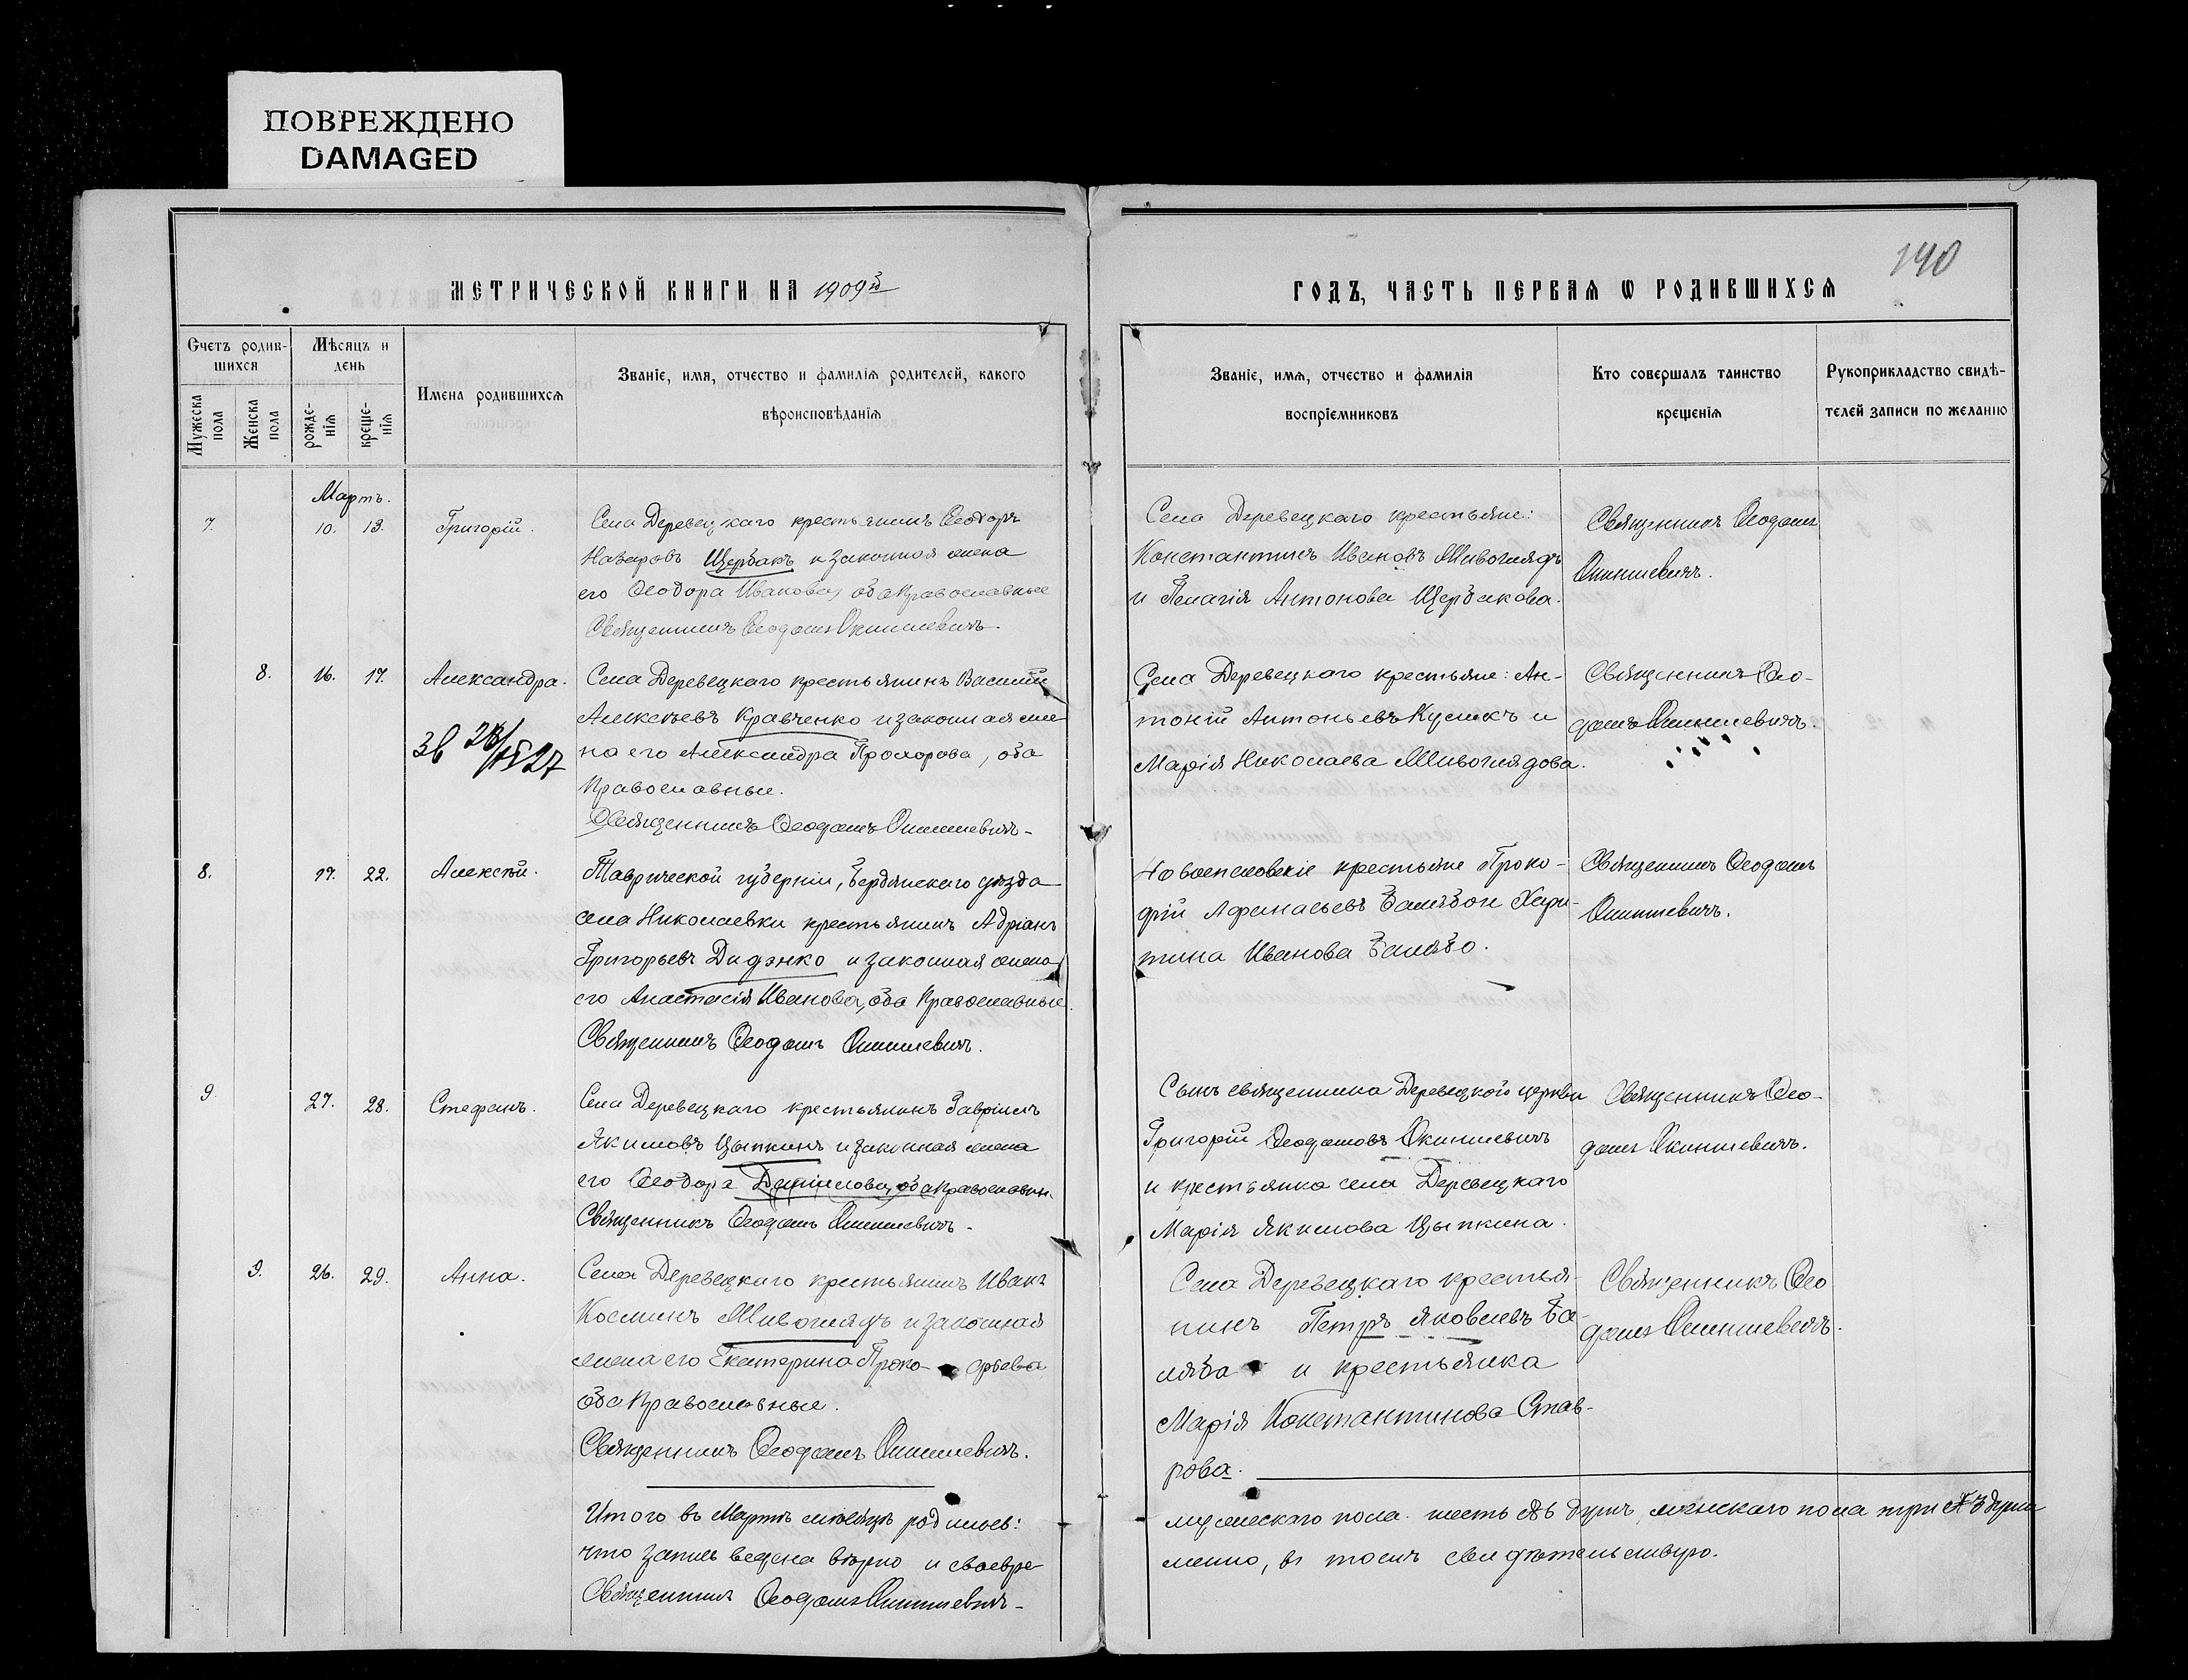 ПОВРЕЖДЕНО
DAMAGED
140
МЕТРИЧЕСКОЙ КНИГИ НА 1909й
ГОДЪ, ЧАСТЬ ПЕРВАЯ Ѡ РОДИВШИХСЯ
Счетъ родив-
шихся
Мѣсяцъ и
день
Имена родившихся
Званіе, имя, отчество и фамилія родителей, какого
вѣроисповѣданія
Мужеска
пола
Женска
пола
рожде-
нія
креще-
нія
Званіе, имя, отчество и фамилія
воспріемниковъ
Кто совершалъ таинство
крещенія
Рукоприкладство свидѣ-
телей записи по желанію
Мартъ.
7. 10. 13. Григорій.
Села Деревецкаго крестьянинъ Ѳеодоръ
Назаровъ Щербакъ и законная жена
его Ѳеодора Иванова, оба Православные
Священникъ Ѳеодотъ Окиншевичъ.
Села Деревецкаго крестьяне:
Константинъ Ивановъ Живоглядъ
и Пелагія Антонова Щербакова.
Священникъ Ѳеодотъ
Окиншевичъ.
8. 16. 17. Александра.
Зв 28/IV 27
Села Деревецкаго крестьянинъ Василій
Алексѣевъ Кравченко и законная же
на его Александра Прохорова, оба
Православные.
Священникъ Ѳеодотъ Окиншевичъ.
Села Деревецкаго крестьяне: Ан-
тоній Антоньевъ и
Марія Николаева Живоглядова.
Священникъ Ѳео-
дотъ Окиншевичъ.
8. 17. 22. Алексѣй.
Таврической губерніи, Бердянскаго уѣзда
села Николаевки крестьянинъ Адріанъ
Григорьевъ Диденко и законная жена
его Анастасія Иванова, оба Православные.
Священникъ Ѳеодотъ Окиншевичъ.
крестьяне Проко-
фій Афанасьевъ Хари-
тина Иванова
Священникъ Ѳеодотъ
Окиншевичъ.
9. 27. 28. Стефанъ.
Села Деревецкаго крестьянинъ Гавріилъ
Якимовъ Цыпкинъ и законная жена
его Ѳеодора Даніилова, оба Православн.
Священникъ Ѳеодотъ Окиншевичъ.
Сынъ священника Деревецкой церкви
Григорій Ѳеодотовъ Окиншевичъ
и крестьянка села Деревецкаго
Марія Якимова Цыпкина.
Священникъ Ѳео-
дотъ Окиншевичъ.
9. 26. 29. Анна.
Села Деревецкаго крестьянинъ Иванъ
Косминъ Живоглядъ и законная
жена его Екатерина Проко- фьева
оба Православные.
Священникъ Ѳеодотъ Окиншевичъ.
Села Деревецкаго крестья-
нинъ Петръ Яковлевъ Ба-
ляба и крестьянка
Марія Константинова Став-
рова.
Священникъ Ѳео-
дотъ Окиншевичъ.
Итого въ Мартѣ мѣсяцѣ родилось:
мужескаго пола шесть душъ, женскаго пола три души
что запись ведена вѣрно и своевре
менно, въ томъ свидѣтельствую.
Священникъ Ѳеодотъ Окиншевичъ.